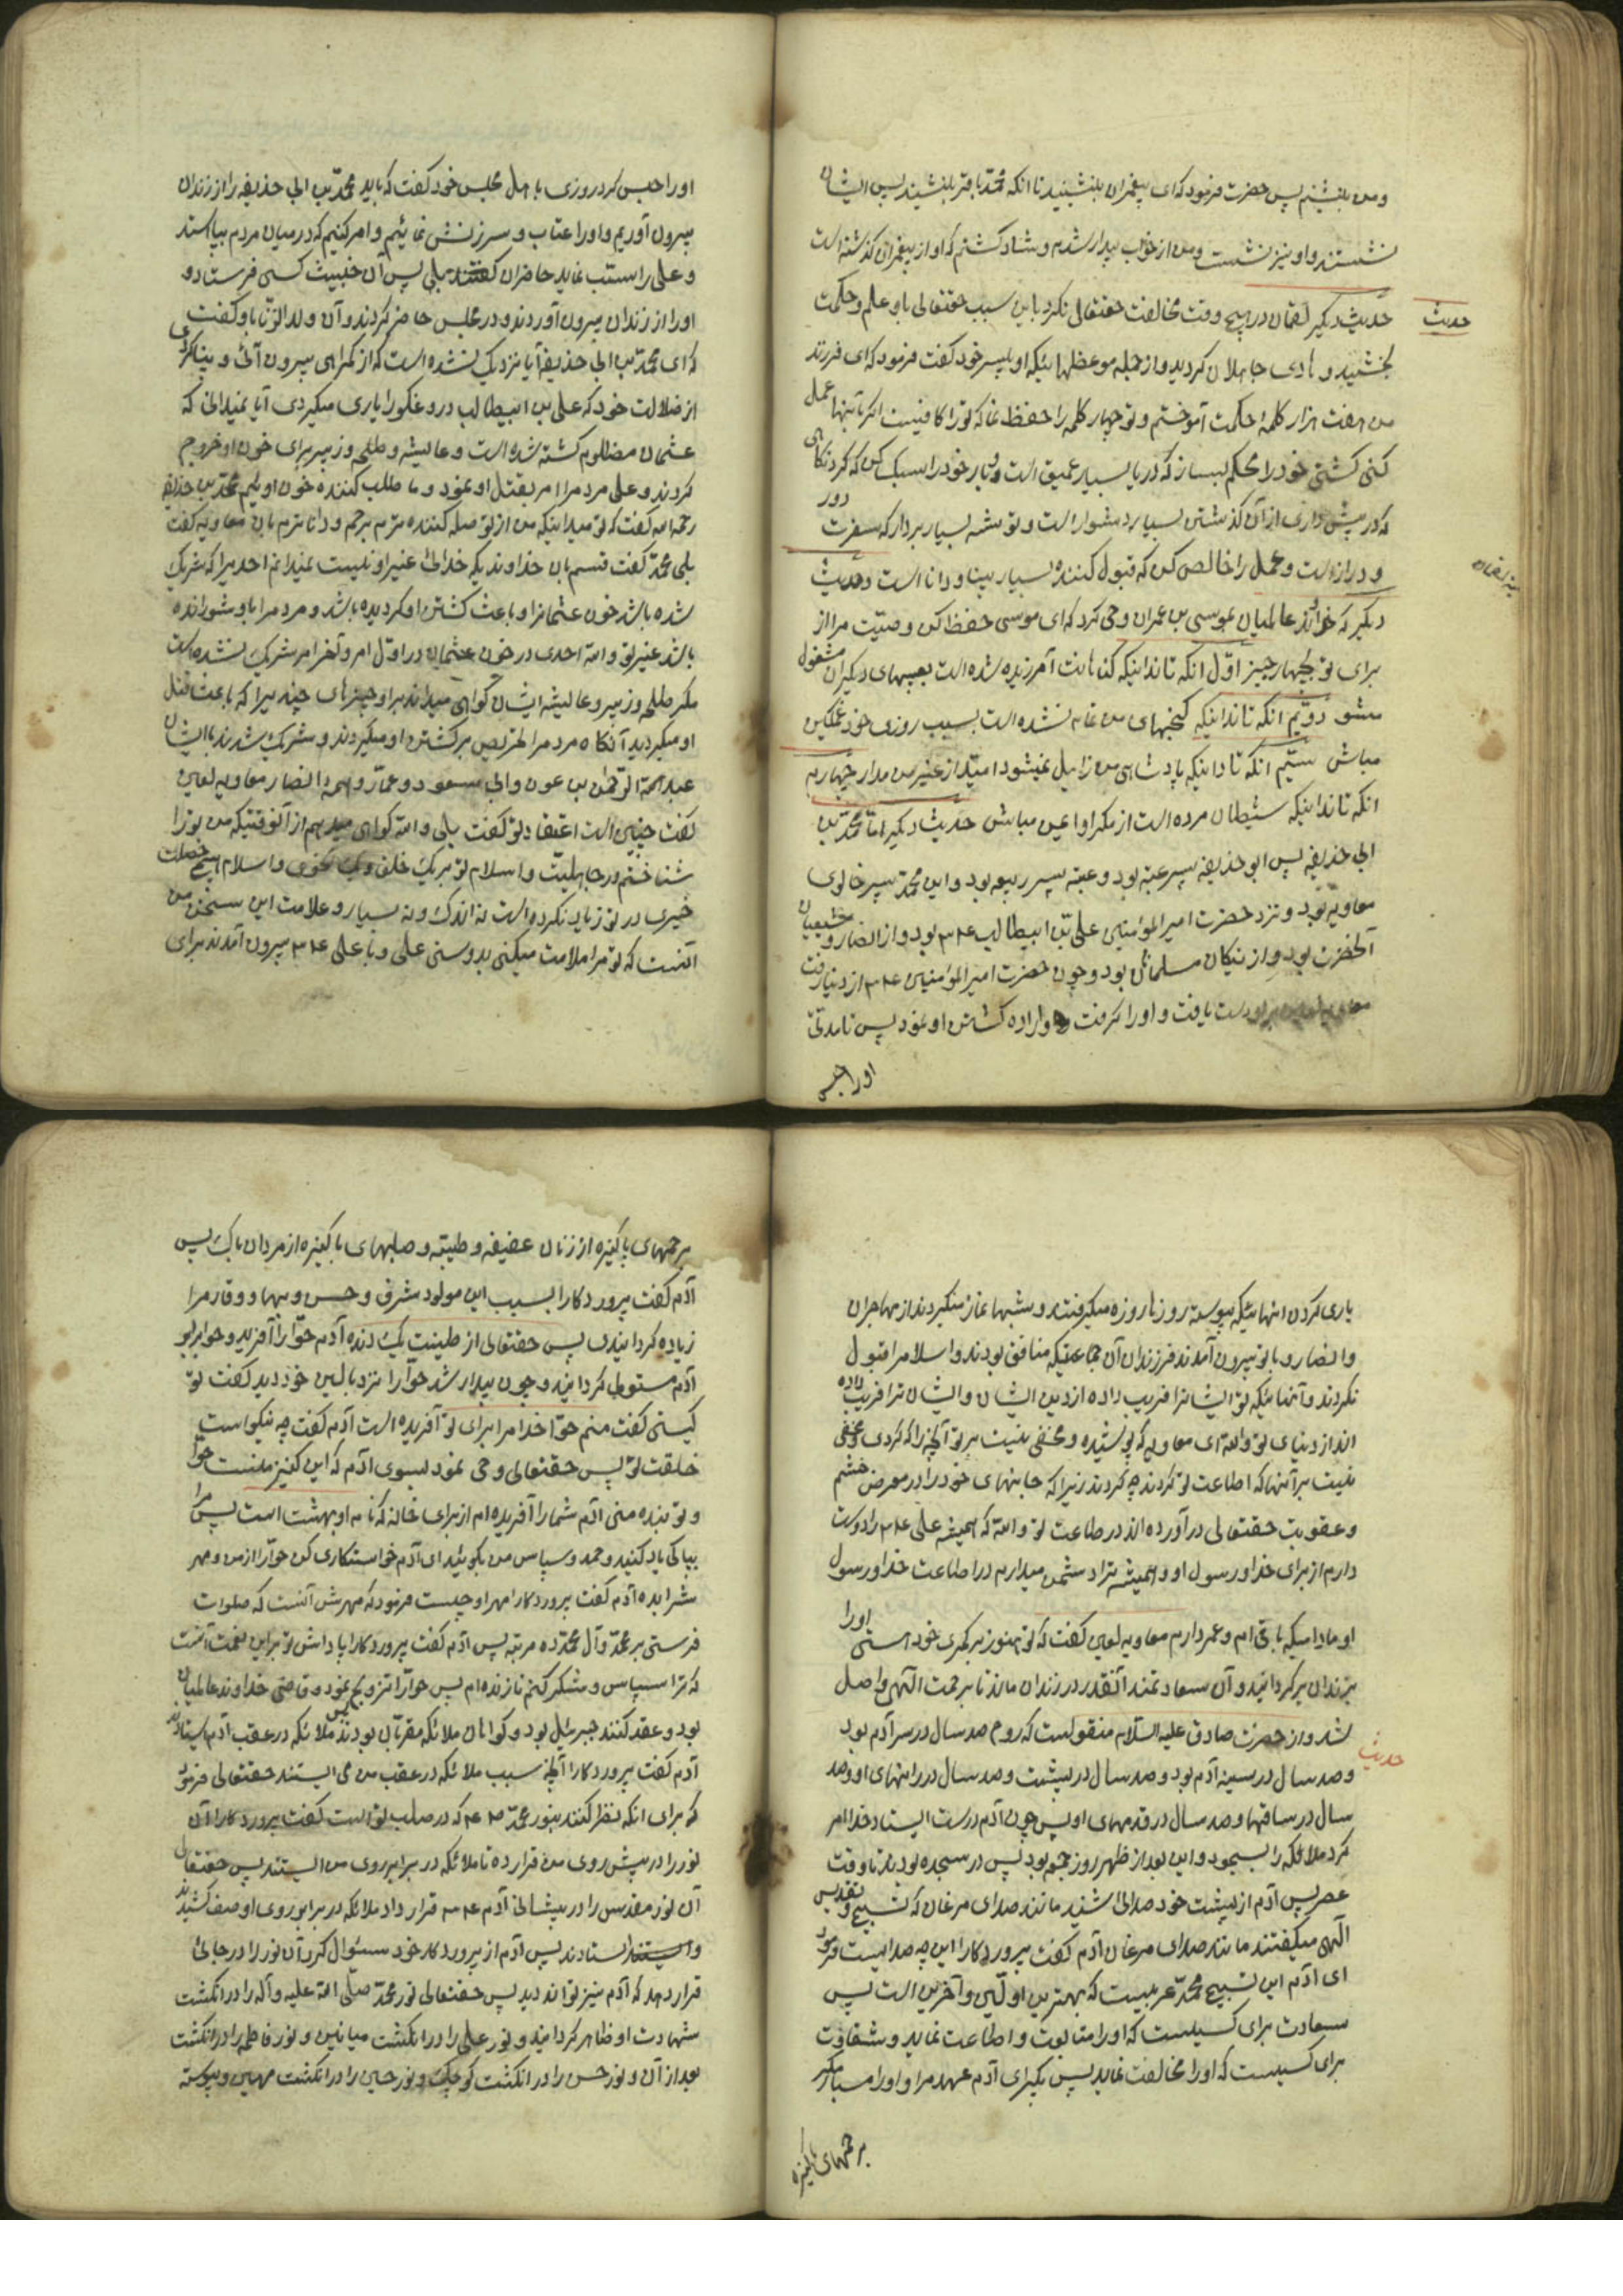 ومن بنشینم پس حضرت فرمود که ای پیغمبران بنشینید تا انکه محمد باقر بنشیند پس ایشان
نشستند و او نیز نشست ومن از خواب بیدار شدم و شاد کشتم که او از پیغمبران کذشته است
حدیث
حدیث دیگر لقمان در هیچ وقت مخالفت حقتعالی نکرد باین سبب حقتعالی باو علم و حکمت
بخشید و هادی جاهلان کردید و از جمله موعظهائیکه او بپسر خود کفت فرمود که ای فرزند
من هفت هزار کلمه حکمت آموختم و تو چهار کلمه را حفظ نما که تو را کافیست اکر بآنها عمل
کنی کشتی خود را محکم بساز که دریا بسیار عمیق است و بار خود را سبک کن که کردنکاهی
که در پیش داری از آن کذشتن بسیار دشوار است و توشه بسیار بردار که سفرت دور
و دراز است و عمل را خالص کن که قبول کننده بسیار بینا و دانا است وحدیث
دیگر که خداوند عالمیان بموسی بن عمران وحی کرد که ای موسی حفظ کن وصیت مرا از
برای تو بچهار چیز اول انکه تا ندانیکه کناهانت آمرزیده شده است بعیبهای دیگران مشغول
مشو دویم انکه تا ندانیکه کنجهای من تمام نشده است بسبب روزی خود غمکین
مباش سیم انکه تا ندانیکه پادشاهی من زایل نمیشود امید از غیر من مدار چهارم
انکه تا ندانیکه شیطان مرده است از مکر او ایمن مباش حدیث دیگر اما محمد بن
ابی حذیفه پس ابوحذیفه پسر عتبه بود و عتبه پسر ربیعه بود و این محمد پسر خالوی
معاویه بود و نزد حضرت امیرالمؤمنین علی بن ابیطالب ع م بود و از انصار و شیعیان
آنحضرت بود و از نیکان مسلمانان بود و چون حضرت امیرالمؤمنین ع م از دنیا رفت
معاویه لعین براو دست یافت و اورا کرفت و اراده کشتن او نمود پس تا مدتی
اورا حبس
اورا حبس کرد روزی باهل مجلس خود کفت که باید محمد بن ابی حذیفه را از زندان
بیرون آوریم و اورا عتاب و سرزنش نمائیم و امر کنیم که در میان مردم بیاستد
و علی را سب نماید حاضران کفتند بلی پس آن خبیث کسی فرستاد و
اورا از زندان بیرون آوردند و در مجلس حاضر کردند و آن ولدالزنا باو کفت
که ای محمد بن ابی حذیفه آیا نزدیک نشده است که از کمراهی بیرون آئی و بینا کردی
از ضلالت خود که علی بن ابیطالب دروغکو را یاری میکردی آیا نمیدانی که
عثمان مظلوم کشته شده است و عایشه و طلحه و زبیر برای خون او خروج
کردند و علی مردم را امر بقتل او نمود و ما طلب کننده خون اوئیم محمد بن حذیفه
رحمه الله کفت که تو میدانیکه من از تو صله کننده ترم برحم و داناترم بان معاویه کفت
بلی محمد کفت قسم بان خداوندیکه خدائی غیر او نیست نمیدانم احدیرا که شریک
شده باشد خون عثمانرا و باعث کشتن او کردیده باشد و مردم را باو شورانده
باشد غیر تو والله احدی در خون عثمان در اول امر و آخر امر شریک نشده است
مکر طلحه و زبیر و عایشه ایشان کواهی میدادند براو چیزهای چندیرا که باعث قتل
او میکردید آنکاه مردم را تحریص بر کشتن او میکردند و شریک شدند با ایشان
عبد الرحمن بن عوف و ابن مسعود و عمار و همه انصار معاویه لعین
کفت چنین است اعتقاد تو کفت بلی والله کواهی میدهم از آنوقتیکه من تو را
شناختم در جاهلیت و اسلام تو بر یک خلق و یک نحوی و اسلام هیچ خصلت
خیری در تو زیاد نکرده است نه اندک و نه بسیار و علامت این سخن من
آنست که تو مرا ملامت میکنی بدوستی علی و با علی ع م بیرون آمدند برای
یاری کردن انهائیکه پیوسته روزها روزه میکرفتند و شبها نماز میکردند از مهاجران
و انصار و با تو بیرون آمدند فرزندان آن جماعتیکه منافق بودند و اسلام را قبول
نکردند و آنهائیکه تو ایشانرا فریب داده از دین ایشان و ایشان ترا فریب داده
اند از دنیای تو والله ای معاویه که پوشیده و مخفی نیست بر تو آنچه را که کردی و مخفی
نیست بر آنها که اطاعت تو کردند چه کردند زیرا که جانهای خود را در معرض خشم
و عقوبت حقتعالی درآورده اند در طاعت تو والله که همیشه علی ع م را دوست
دارم از برای خدا و رسول او و همیشه ترا دشمن میدارم در اطاعت خدا و رسول
او مادامیکه باقی ام و عمر دارم معاویه لعین کفت که تو هنوز بر کمرهی خود هستی اورا
بزندان برکردانید و آن سعادتمند آنقدر در زندان ماند تا برحمت الهی واصل
حدیث
شد و از حضرت صادق علیه السلام منقولست که روح صد سال در سر آدم بود
و صد سال در سینه آدم بود و صد سال در پشت و صد سال در رانهای او و صد
سال در ساقها و صد سال در قدمهای او پس چون آدم درست ایستاد خدا امر
کرد ملائکه را بسجود و این بعد از ظهر روز جمعه بود پس در سجده بودند تا وقت
عصر پس آدم از پشت خود صدائی شنید مانند صدای مرغان که تسبیح و تقدیس
الهی میکفتند مانند صدای مرغان آدم کفت پروردکارا این چه صداییست فرمود
ای آدم این تسبیح محمد عربیست که بهترین اولین و آخرین است پس
سعادت برای کسیست که اورا متابعت و اطاعت نماید و شقاوت
برای کسیست که اورا مخالفت نماید پس بکیر ای آدم عهد مرا و اورا مسپار مکر
برحمهای پاکیزه
برحمهای پاکیزه از زنان عفیفه و طیبه و صلبهای پاکیزه از مردان پاک پس
آدم کفت پروردکارا بسبب این مولود شرف و حسن و بهاء و وقار مرا
زیاده کردانیدی پس حقتعالی از طینت یک دنده آدم حوا را آفرید و خواب بر
آدم مستولی کردانید و چون بیدار شد حوا را نزد بالین خود دید کفت تو
کیستی کفت منم حوا خدا مرا برای تو آفریده است آدم کفت چه نیکو است
خلقت تو پس حقتعالی وحی نمود بسوی آدم که این کنیز منست حوا
و تو بنده منی آدم شما را آفریده ام از برای خانه که نام او بهشت است پس مرا
بپاکی یاد کنید و حمد و سپاس من بکوئید ای آدم خواستکاری کن حوا را از من و مهر
شرا بده آدم کفت پروردکارا مهر او چیست فرمود که مهرش آنست که صلوات
فرستی بر محمد و آل محمد ده مرتبه پس آدم کفت پروردکارا پاداش تو براین نعمت آنست
که ترا سپاس و شکر کنم تا زنده ام پس حوا را تزویج نمود و قاضی خداوند عالمیان
بود و عقد کننده جبرئیل بود و کواهان ملائکه مقربان بودند پس ملائکه در عقب آدم ایستادند
آدم کفت پروردکارا آیا بچه سبب ملائکه در عقب من می ایستند حقتعالی فرمود
که برای انکه نظر کنند بنور محمد ص ع م که در صلب تو است کفت پروردکارا آن
نور را در پیش روی من قرار ده تا ملائکه در برابر روی من ایستند پس حقتعالی
آن نور مقدس را در پیشانی آدم ع م قرار داد ملائکه در برابر روی او صف کشیدند
و ایستادند پس آدم از پروردکار خود سئوال کرد آن نور را در جائی
قرار دهد که آدم نیز تواند دید پس حقتعالی نور محمد صلی الله علیه و آله را در انکشت
شهادت او ظاهر کردانید و نور علی را در انکشت میانین و نور فاطمه را در انکشت
بعد از آن و نور حسن را در انکشت کوچک و نور حسین را در انکشت مهین و پیوسته